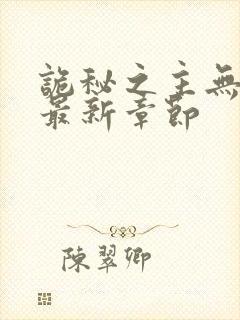 詭秘之主無
最新章節
陳翠卿